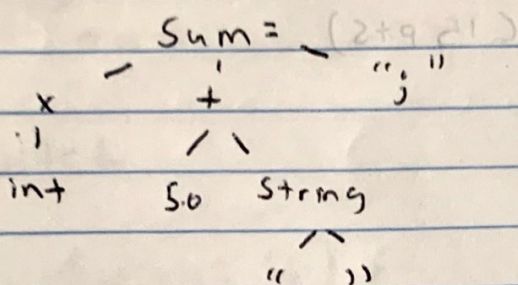 Sum =
x + “;”
int 5.0 String
“ ”